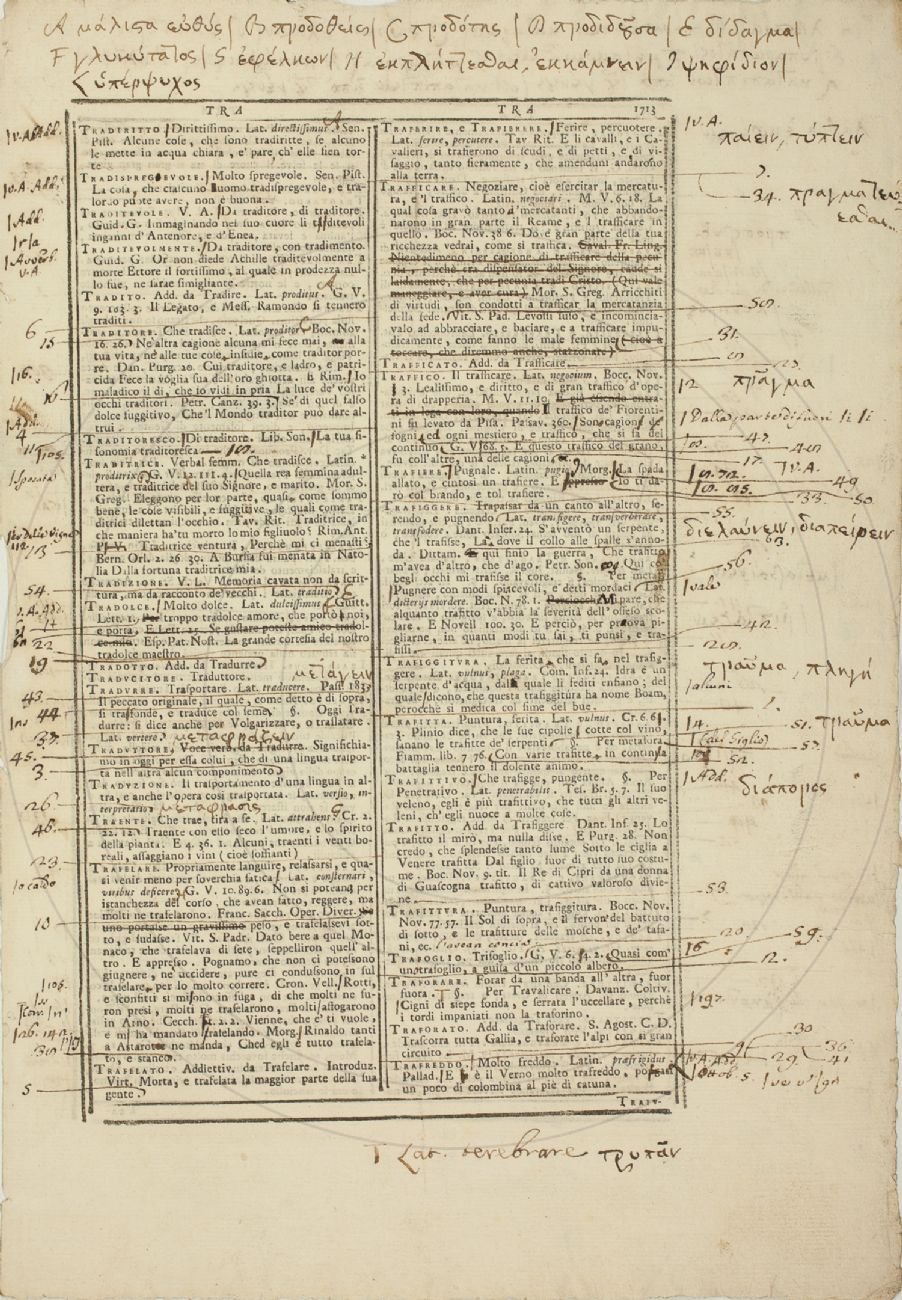 A μάλιστα εὐθύς | B προδοθείς | C προδότης | D προδιδοῦσα | E δίδαγμα |
F γλυκύτατος | G ἐφέλκων | H ἐκπλήττεσθαι, ἐκκάμνειν | I ψηφίδιον |
ὑπέρψυχος
TRA TRA 1713
TRADIRITTO. Dirittissimo. Lat. directissimus. A Sen.
Pist. Alcune cose, che sono tradiritte, se alcuno
le mette in acqua chiara, e' pare, ch' elle sien tor-
te.
TRADISPREGEVOLE. Molto spregevole. Sen. Pist.
La cosa, che ciascuno uomo tradispregevole, e tra-
lordo puote avere, non è buona.
TRADITEVOLE. V. A. Da traditore, di traditore.
Guid. G. Immaginando nei suo cuore li traditevoli
inganni d'Antenore, e d'Enea.
TRADITEVOLMENTE. Da traditore, con tradimento.
Guid. G. Or non diede Achille traditevolmente a
morte Ettore il fortissimo, al quale in prodezza nul-
lo fue, ne sarae simigliante.
TRADITO. Add. da Tradire. Lat. proditus. G. V.
9. 103. 3. Il Legato, e Mess. Ramondo si tennero
traditi.
TRADITORE. Che tradisce. Lat. proditor. C Boc. Nov.
16. 26. Ne altra cagione alcuna mi fece mai, alla
tua vita, nè alle tue cose, insidie, come traditor por-
re. Dan. Purg. 20. Cui traditore, e ladro, e patri-
cida Fece la voglia sua dell'oro ghiotta. Rim. Io
maladico il dì, che io vidi in pria La luce de' vostri
occhi traditori. Petr. Canz. 39. 3. Se' di quel falso
dolce fuggitivo, Che 'l Mondo traditor può dare al-
trui.
TRADITORESCO. Di traditore. Lib. Son. La tua fi-
sonomia traditoresca
TRADITRICE. Verbal femm. Che tradisce. Latin.
proditrix. G. V. 12. 111. 4. Quella rea femmina adul-
tera, e traditrice del suo Signore, e marito. Mor. S.
Greg. Eleggono per lor parte, quasi come sommo
bene, le cose visibili, e fuggitive, le quali come tra-
ditrici dilettan l'occhio. Tav. Rit. Traditrice, in
che maniera ha'tu morto lo mio figliuolo? Rim. Ant.
P. V. Traditrice ventura, Perchè mi ci menasti?
Bern. Orl. 2. 26. 30. A Bursia fui menata in Nato-
lia Dalla fortuna traditrice mia.
TRADIZIONE. V. L. Memoria cavata non da scrit-
tura, ma da racconto de' vecchi. Lat. traditio. E
TRADOLCE. Molto dolce. Lat. dulcissimus. Guitt.
Lett. 1. Per troppo tradolce amore, che portò noi,
e porta. E Lett. 25. Se gustare poteste amico tradol-
ce mio. Esp. Pat. Nost. La grande cortesia del nostro
tradolce maestro.
TRADOTTO. Add. da Tradurre.
TRADUCITORE. Traduttore. μετάγειν
TRADURRE. Trasportare. Lat. traducere. Pass. 183.
Il peccato originale, il quale, come detto è di sopra,
si trasfonde, e traduce col seme. §. Oggi Tra-
durre: si dice anche per Volgarizzare, o traslatare.
Lat. vertere. μεταφράζειν
TRADUTTORE. Voce verb. da Tradurre. Significhia-
mo in oggi per essa colui, che di una lingua traspor-
ta nell'altra alcun componimento.
TRADUZIONE. Il trasportamento d'una lingua in al-
tra, e anche l'opera così trasportata. Lat. versio, in-
terpretatio. μετάφρασις
TRAENTE. Che trae, tira a se. Lat. attrahens. G Cr. 2.
22. 12. Traente con esso seco l'umore, e lo spirito
della pianta. E 4. 36. 1. Alcuni, traenti i venti bo-
reali, assaggiano i vini (cioè soffianti)
TRAFELARE. Propriamente languire, relassarsi, e qua-
si venir meno per soverchia fatica. Lat. consternari,
viribus deficere. G. V. 10. 89. 6. Non si potean, per
istanchezza del corso, che avean fatto, reggere, ma
molti ne trafelarono. Franc. Sacch. Oper. Diver.
uno portasse un gravissimo peso, e trafelassevi sot-
to, e sudasse. Vit. S. Padr. Dato bere a quel Mo-
naco, che trafelava di sete, seppelliron quell' al-
tro. E appresso. Pognamo, che non ci potessono
giugnere, ne uccidere, pure ci condussono in sul
trafelare, per lo molto correre. Cron. Vell. Rotti,
e sconfitti si misono in fuga, di che molti ne fu-
ron presi, molti ne trafelarono, molti affogarono
in Arno. Cecch. 2. 2. Vienne, che e' ti vuole,
e mi ha mandato trafelando. Morg. Rinaldo tanti
a Astarotte ne manda, Ched egli è tutto trafela-
to, e stanco.
TRAFELATO. Addiettiv. da Trafelare. Introduz.
Virt. Morta, e trafelata la maggior parte della sua
gente.
TRAFERIRE, e TRAFIERERE. Ferire, percuotere.
Lat. ferire, percutere. Tav Rit. E li cavalli, e i Ca-
valieri, si trafierono di scudi, e di petti, e di vi-
saggio, tanto fieramente, che amenduni andarono
alla terra.
TRAFFICARE. Negoziare, cioè esercitar la mercatu-
ra, e 'l traffico. Latin. negotiari. M. V. 6. 18. La
qual cosa gravò tanto i mercatanti, che abbando-
narono in gran parte il Reame, e 'l trafficare in
quello. Boc. Nov. 38. 6. Dove gran parte della tua
ricchezza vedrai, come si traffica. Caval. Fr. Ling.
Nientedimeno per cagione di trafficare della pecu-
nia, perchè era dispensator del Signore, cadde sì
laidamente, che per pecunia tradì Cristo. (Qui vale
maneggiare, e aver cura) Mor. S. Greg. Arricchiti
di virtudi, son condotti a trafficar la mercatanzia
della fede. Vit. S. Pad. Levossi suso, e incomincia-
valo ad abbracciare, e baciare, e a trafficare impu-
dicamente, come fanno le male femmine (cioè a
toccare, che diremmo anche, stazzonare)
TRAFFICATO. Add. da Trafficare.
TRAFFICO. Il trafficare. Lat. negocium. Bocc. Nov.
3. Lealissimo, e diritto, e di gran traffico d'ope-
ra di drapperia. M. V. 11. 10. E già essendo entra-
ti in lega con loro, quando Il traffico de' Fiorenti-
ni fu levato da Pisa. Passav. 360. Son cagione de'
sogni, ed ogni mestiero, e traffico, che si fa del
continuo. G. V. 68. 5. E questo traffico del grano,
fu coll'altre, una delle cagioni.
TRAFIERE. Pugnale. Latin. pugio. Morg. La spada
allato, e cintosi un trafiere. E appresso. Io ti da-
rò col brando, e tol trafiere.
TRAFIGGERE. Trapassar da un canto all'altro, fe-
rendo, e pugnendo. Lat. transfigere, transverberare,
transfodere. Dant. Infer. 24. S'avventò un serpente,
che 'l trafisse, Là dove il collo alle spalle s'anno-
da. Dittam. E qui finìo la guerra, Che trafitto
m'avea d'altro, che d'ago. Petr. Son. Qui co'
begli occhi mi trafisse il core. §. Per metaf.
Pugnere con modi spiacevoli, e detti mordaci. Lat.
dicterijs mordere. Boc. N. 78. 1. Perciocchè Mi pare, che
alquanto trafitto v'abbia la severità dell' offeso sco-
lare. E Novell. 100. 30. E perciò, per pruova pi-
gliarne, in quanti modi tu sai, ti punsi, e tra-
fissi.
TRAFIGGITURA. La ferita, che si fa nel trafig-
gere. Lat. vulnus, plaga. Com. Inf. 24. Idra è un
serpente d'acqua, dal quale li fediti enfiano; del
quale dicono, che questa trafiggitura ha nome Boam,
perocchè si medica col fime del bue.
TRAFITTA. Puntura, ferita. Lat. vulnus. Cr. 6. 6.
3. Plinio dice, che le sue cipolle cotte col vino,
sanano le trafitte de' serpenti. §. Per metafora,
Fiamm. lib. 7. 76. Con varie trafitte, in continua
battaglia tennero il dolente animo.
TRAFITTIVO. Che trafigge, pungente. §. Per
Penetrativo. Lat. penetrabilis. Tes. Br. 5. 7. Il suo
veleno, egli è più trafittivo, che tutti gli altri ve-
leni, ch' egli nuoce a molte cose.
TRAFITTO. Add. da Trafiggere. Dant. Inf. 25. Lo
trafitto il mirò, ma nulla disse. E Purg. 28. Non
credo, che splendesse tanto lume Sotto le ciglia a
Venere trafitta Dal figlio fuor di tutto suo costu-
me. Boc. Nov. 9. tit. Il Re di Cipri da una donna
di Guascogna trafitto, di cattivo valoroso divie-
ne.
TRAFITTURA. Puntura, trafiggitura. Bocc. Nov.
Nov. 77. 57. Il Sol di sopra, e il fervor del battuto
di sotto, e le trafitture delle mosche, e de' tafa-
ni, ec. l'avean concia
TRAFOGLIO. Trifoglio. G. V. 6. 54. 2. Quasi com'
un trafoglio, a guisa d'un piccolo albero.
TRAFORARE. Forar da una banda all'altra, fuor
fuora. T §. Per Travalicare. Davanz. Coltiv.
Cigni di siepe fonda, e serrata l'uccellare, perchè
i tordi impaniati non la traforino.
TRAFORATO. Add. da Traforare. S. Agost. C. D.
Trascorra tutta Gallia, e traforate l'alpi con sì gran
circuito
TRAFREDDO. Molto freddo. Latin. præfrigidus.
Pallad. E è il Verno molto trafreddo, pognan
un poco di colombina al piè di catuna.
TRAFU-
παίειν, τύπτειν
34. πραγματεύ
εσθαι
πρᾶγμα
διελαύνειν, διαπείρειν
τραῦμα, πληγή
τραῦμα
διάπορος
T Lat. terebrare τρυπᾶν